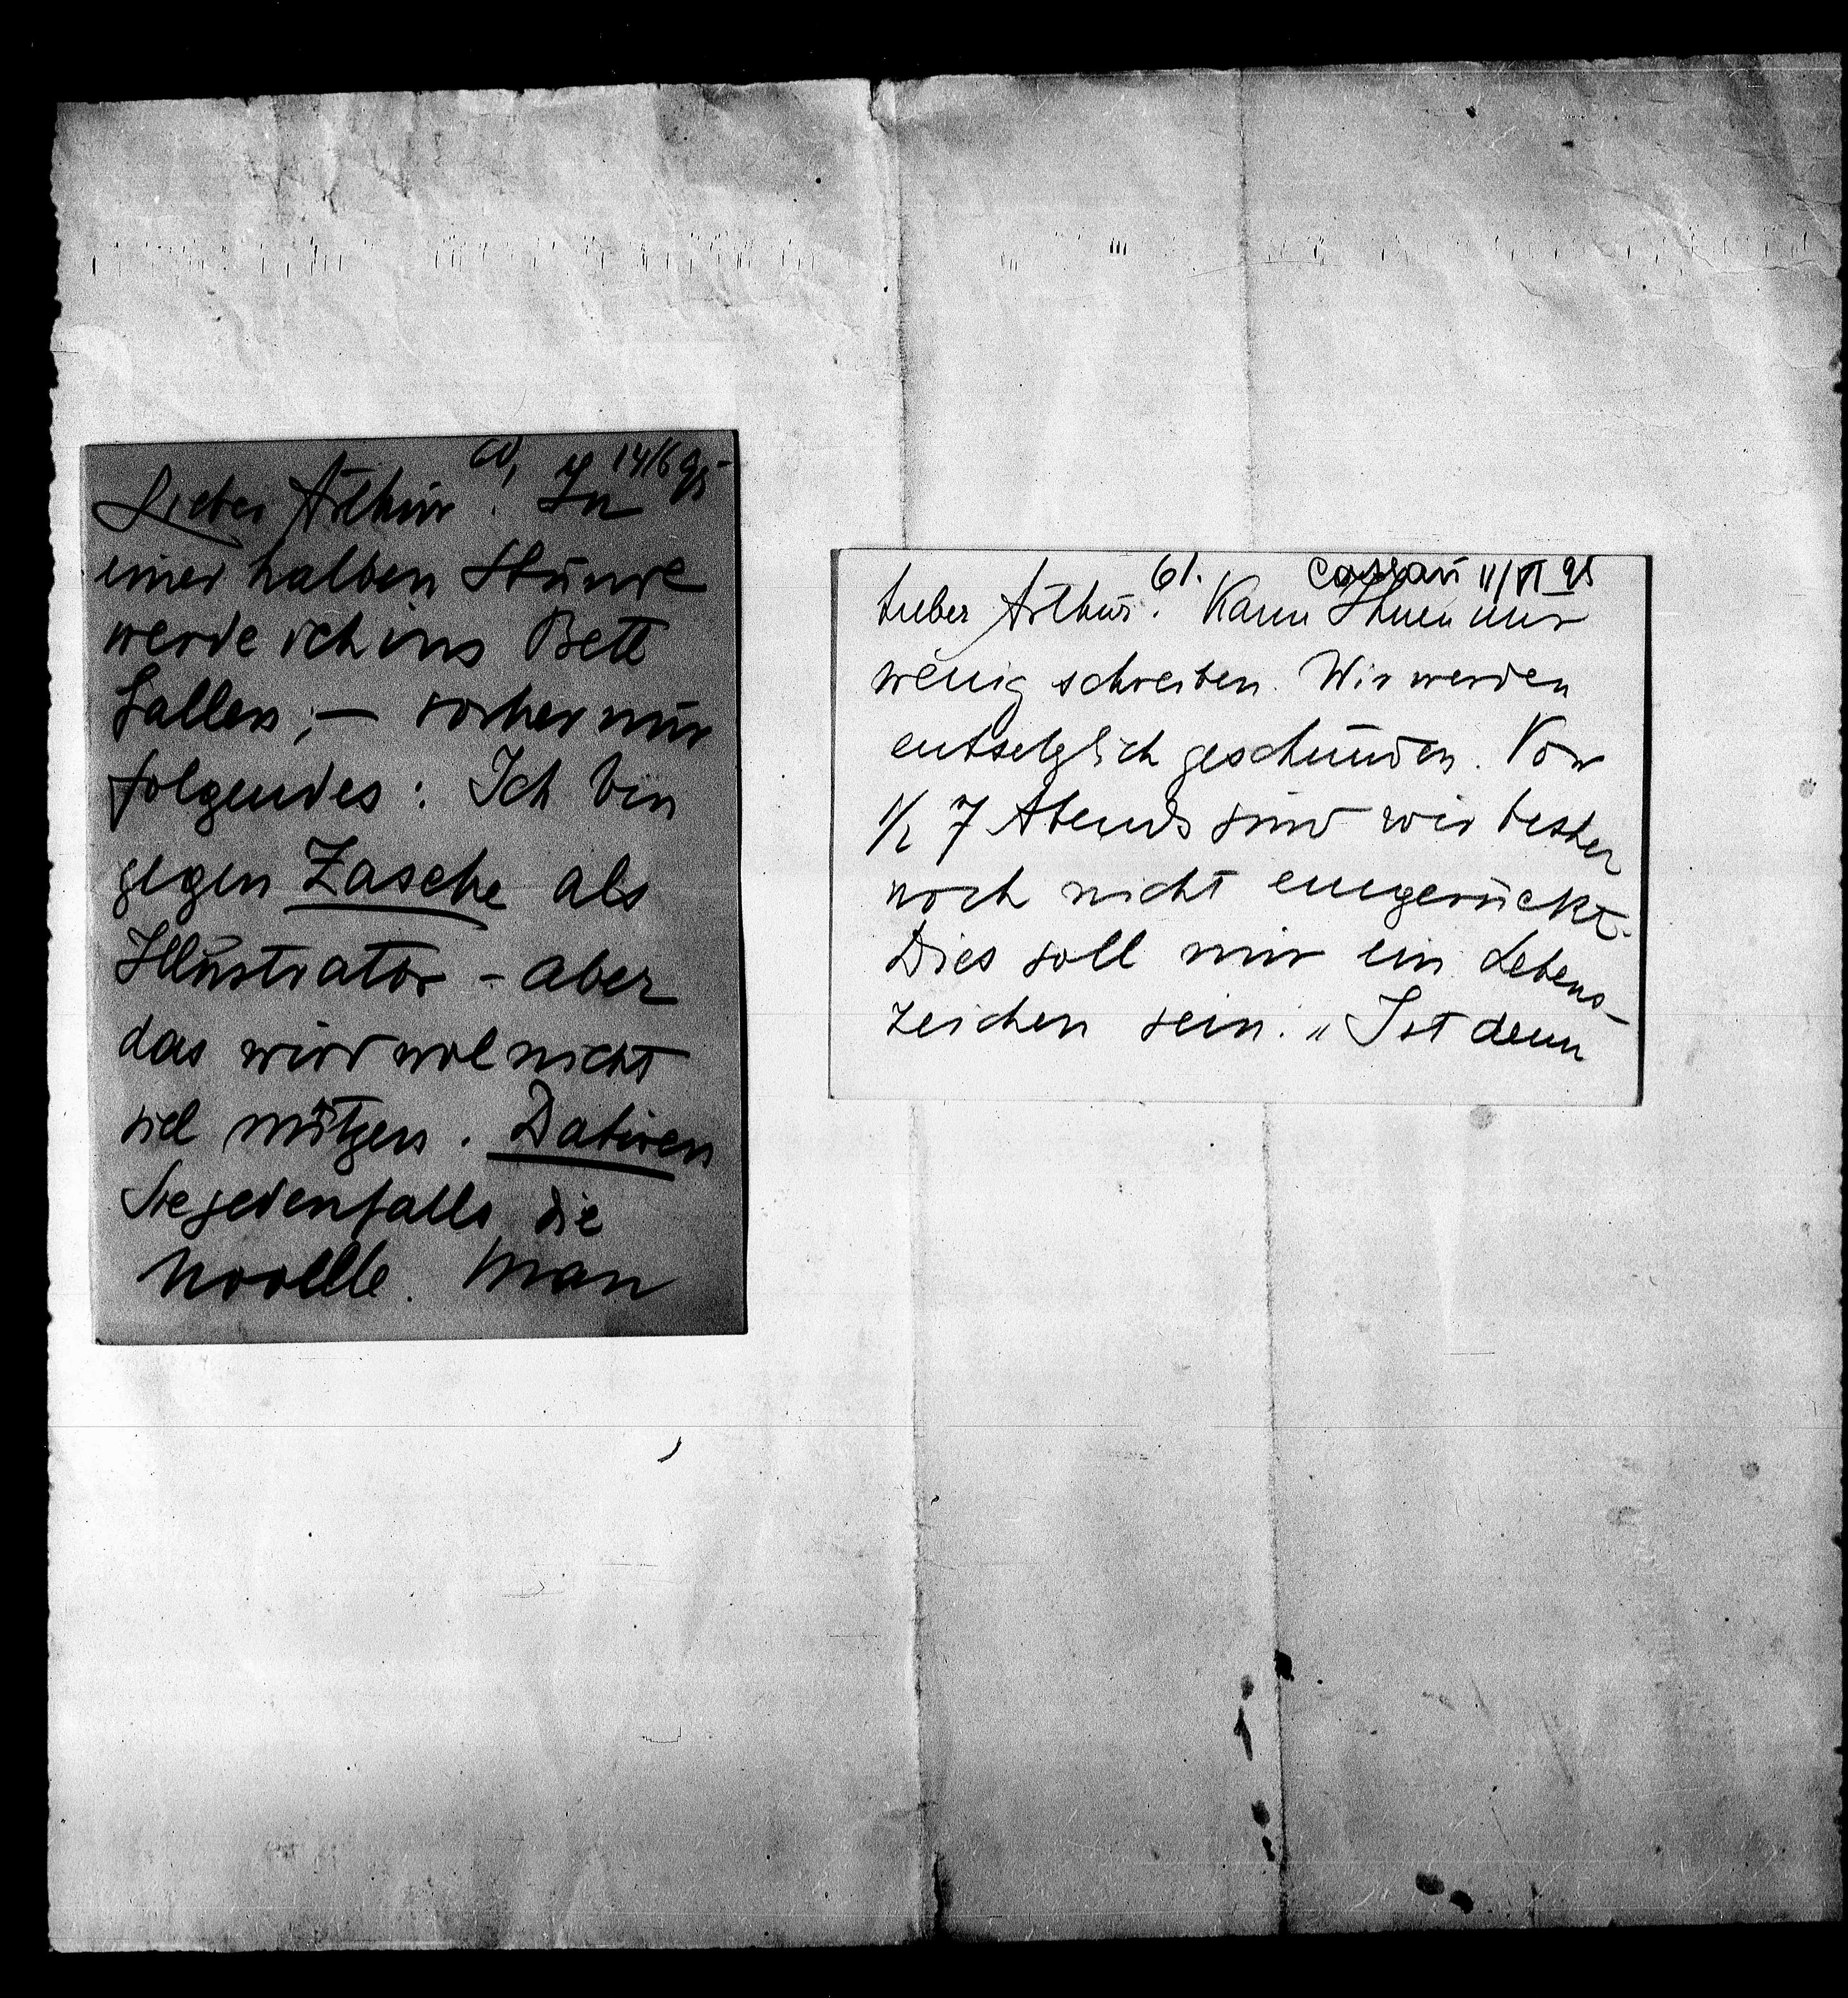 60, 14/6 95
Lieber Arthur! In
einer halben Stunde
werde ich ins Bett
fallen, — vorher nur
folgendes: Ich bin
gegen Zasche als
Illustrator – aber
das wird wol nicht
viel nützen. Datiren
Sie jedenfalls die
Novelle. Man
61. 11/VI 95
Lieber Arthur! Kann Ihnen nur
wenig schreiben. Wir werden
entsetzlich geschunden. Vor
1/2 7 Abends sind wir bisher
noch nicht eingerückt.
Dies soll nur ein Lebens-
zeichen sein. „Ist denn